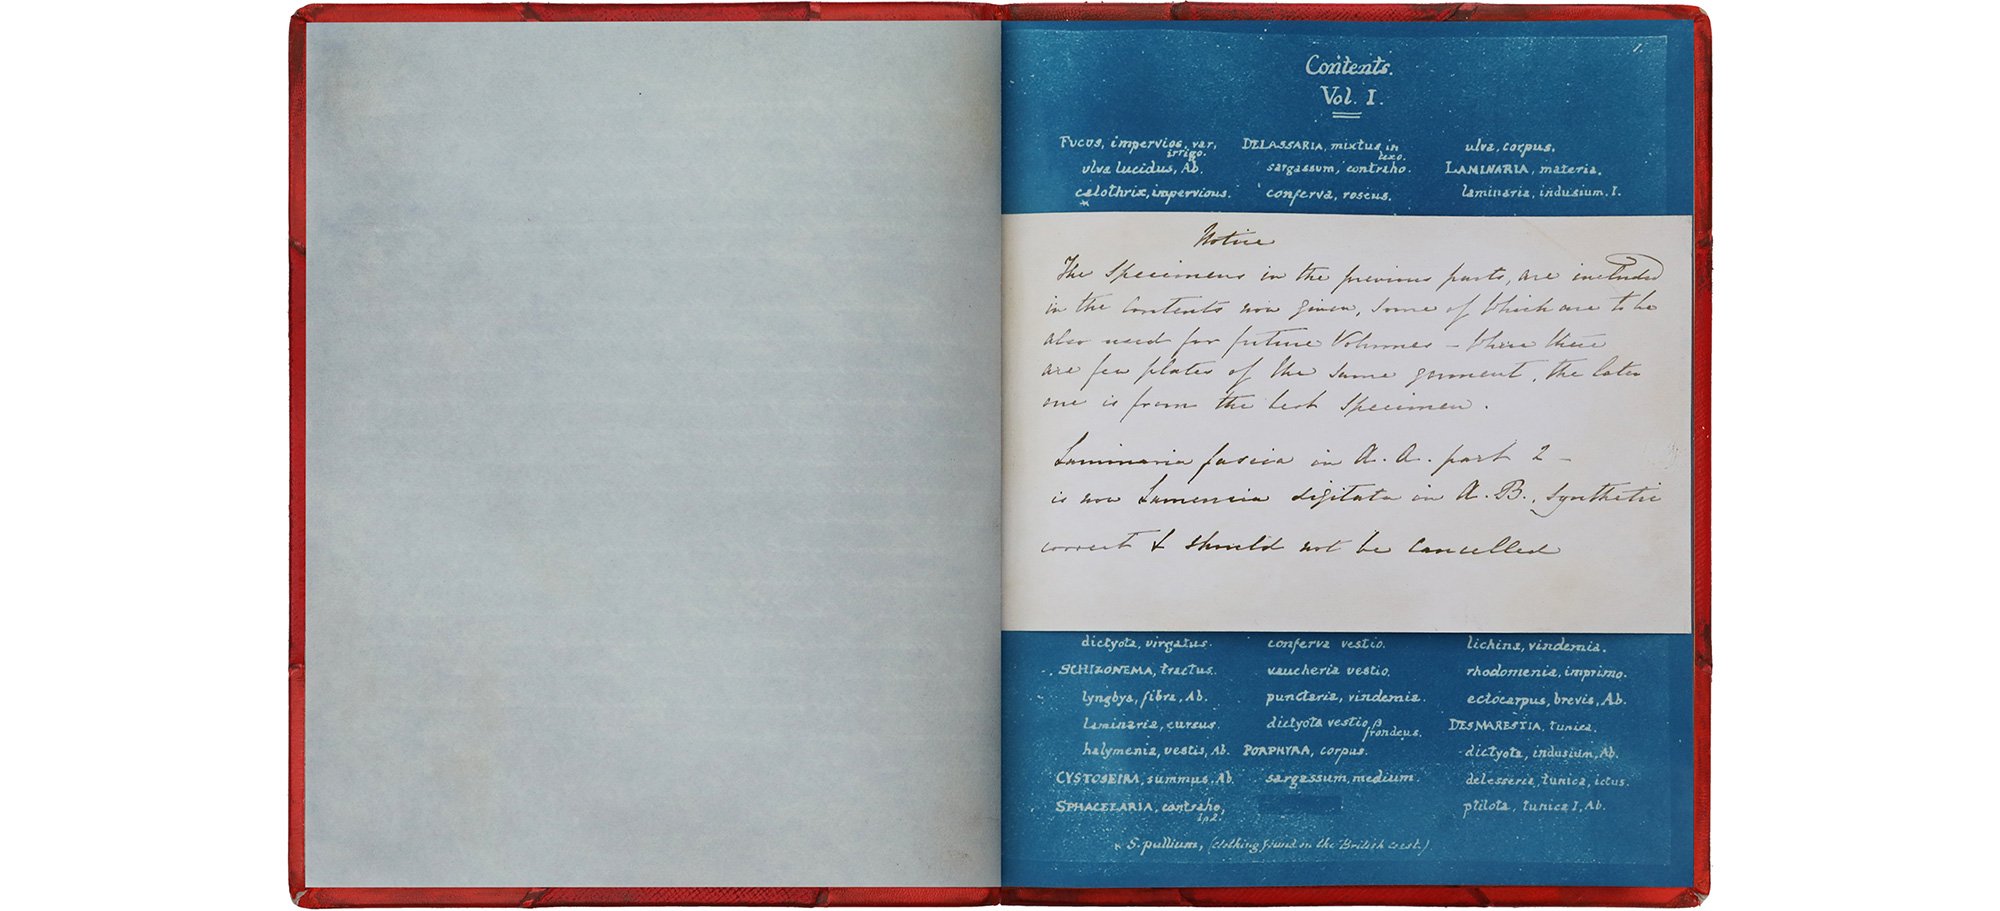 1.
Contents.
Vol. I.
Fucus, impervios, var,
irrigo.
ulva lucidus, Ab.
calothrix, impervious.
DELASSARIA, mixtus in
texo.
sargassum, contraho.
conferva, roseus.
ulva, corpus.
LAMINARIA, materia.
laminaria, indusium. I.
Notice
The Specimens in the previous parts, are included
in the Contents now given, Some of which are to be
also used for future Volumes – Where there
are few plates of the same garment, the later
one is from the best Specimen.
Laminaria fascia in A. A. part 2 –
is now Lamencia digitata in A. B., Synthetic
correct & should not be Cancelled
dictyota, virgatus.
SCHIZONEMA, tractus.
lyngbya, fibra, Ab.
laminaria, cursus.
halymenia, vestis, Ab.
CYSTOSEIRA, summus, Ab.
SPHACELARIA, contraho,
1p2.
conferva vestio.
vaucheria vestio.
punctaria, vindemia.
dictyota vestio, β
frondeus.
PORPHYRA, corpus.
sargassum, medium.
lichina, vindemia.
rhodomenia, imprimo.
ectocarpus, brevis, Ab.
DESMARESTIA, tunica.
dictyota, indusium, Ab.
delesseria, tunica, ictus.
ptilota, tunica I, Ab.
S. pullium, (clothing found on the British coast.)